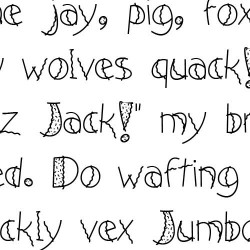 e jay, pig, fox
wolves quack!
z Jack!" my br
ed. Do wafting
ckly vex Jumbo